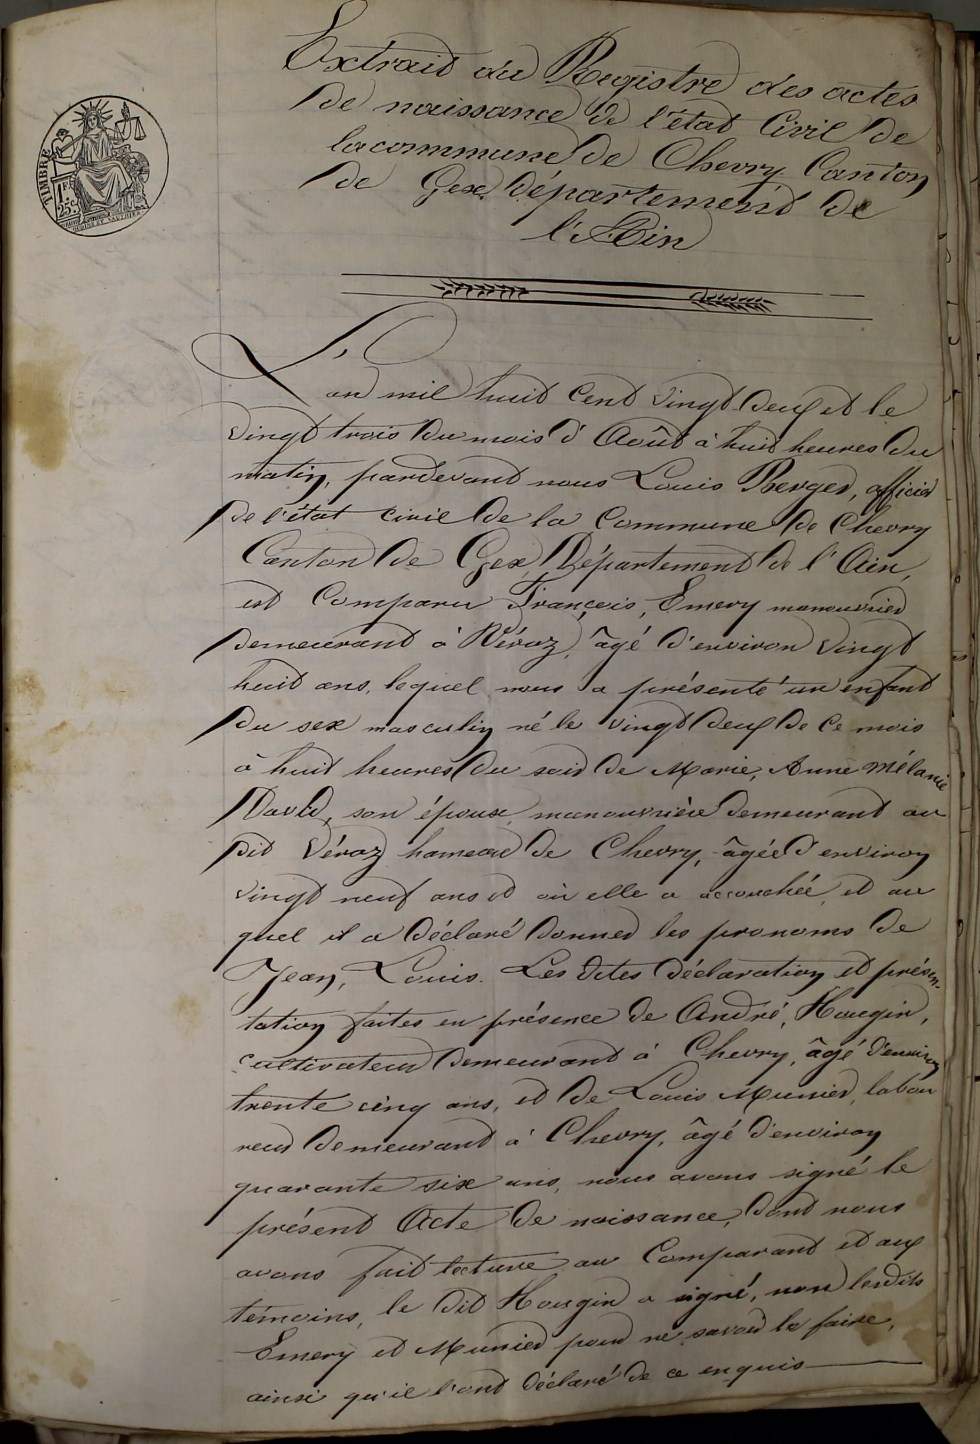 Extrait du Registre des actes
de naissance de l'état Civil de
la commune de Chevry Canton
de Gex, département de
l'Ain
TIMBRE
1 F
25 c
L'an mil huit Cent vingt deux et le
vingt trois du mois d'Août à huit heures du
matin, pardevant nous Louis Berger, officier
de l'état civil de la Commune de Chevry
Canton de Gex, Département de l'Ain,
est Comparu François, Emery manouvrier
demeurant à Véraz, âgé d'environ vingt
huit ans, lequel nous a présenté un enfant
du sex masculin né le vingt deux de ce mois
à huit heures du soir de Marie, Anne Mélanie
David, son épouse, manouvrière demeurant au
dit Véraz hameau de Chevry, âgée d'environ
vingt neuf ans et où elle a accouchée, et au
quel il a déclaré donner les pronoms de
Jean, Louis. Les dites déclaration et présen-
tation faites en présence de André, Hougin,
cultivateur demeurant à Chevry, âgé d'environ
trente cinq ans, et de Louis Munier, labou
reur demeurant à Chevry, âgé d'environ
quarante six ans, nous avons signé le
présent Acte de naissance, dont nous
avons fait lecture au Comparant et aux
témoins, le dit Hougin a signé, non lesdits
Emery et Munier pour ne savoir le faire,
ainsi qu'il l'ont déclaré de ce enquis